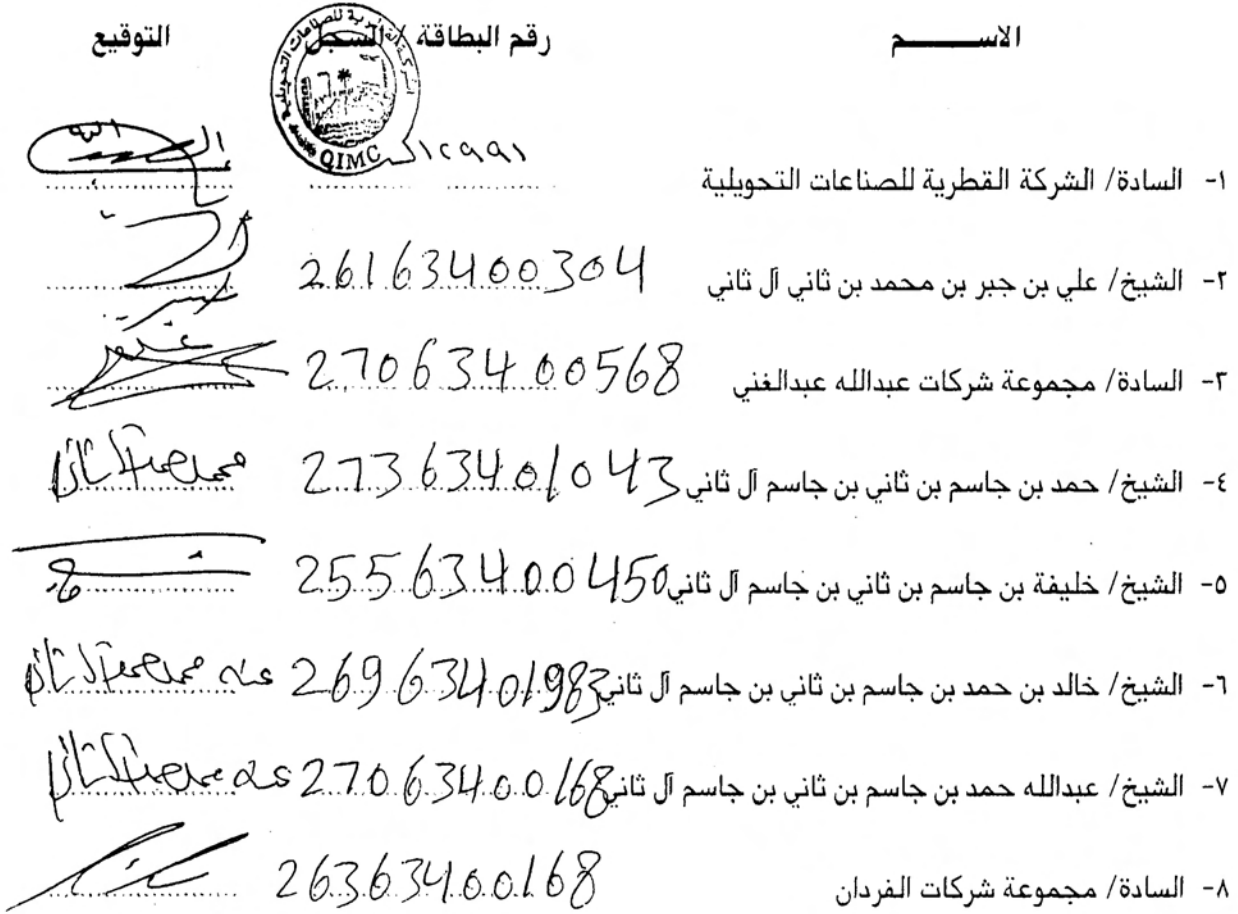 الاســـــــم رقم البطاقة / السجل التوقيع
١- السادة/ الشركة القطرية للصناعات التحويلية ١٢٩٩١
QIMC
٢- الشيخ/ علي بن جبر بن محمد بن ثاني آل ثاني 26163400304
٣- السادة/ مجموعة شركات عبدالله عبدالغني 27063400568
٤- الشيخ/ حمد بن جاسم بن ثاني بن جاسم آل ثاني 27363401043
٥- الشيخ/ خليفة بن جاسم بن ثاني بن جاسم آل ثاني 25563400450
٦- الشيخ/ خالد بن حمد بن جاسم بن ثاني بن جاسم آل ثاني 26963401983 عنه
٧- الشيخ/ عبدالله حمد بن جاسم بن ثاني بن جاسم آل ثاني 27063400168 عنه
٨- السادة/ مجموعة شركات الفردان 26363400168